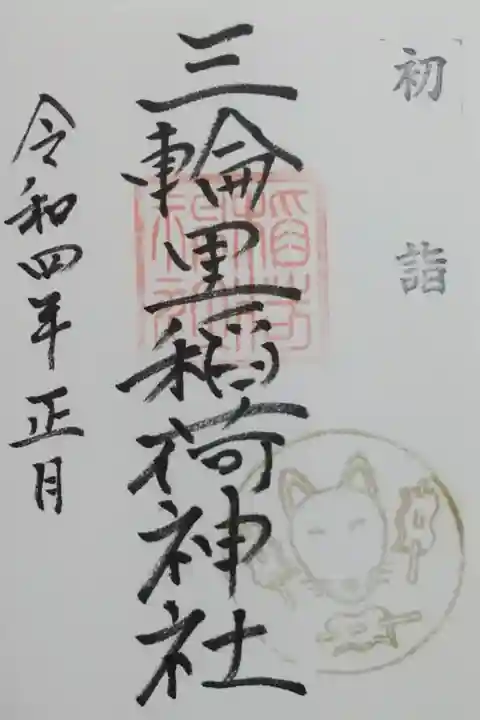 初詣
三輪里稲荷神社
令和四年正月